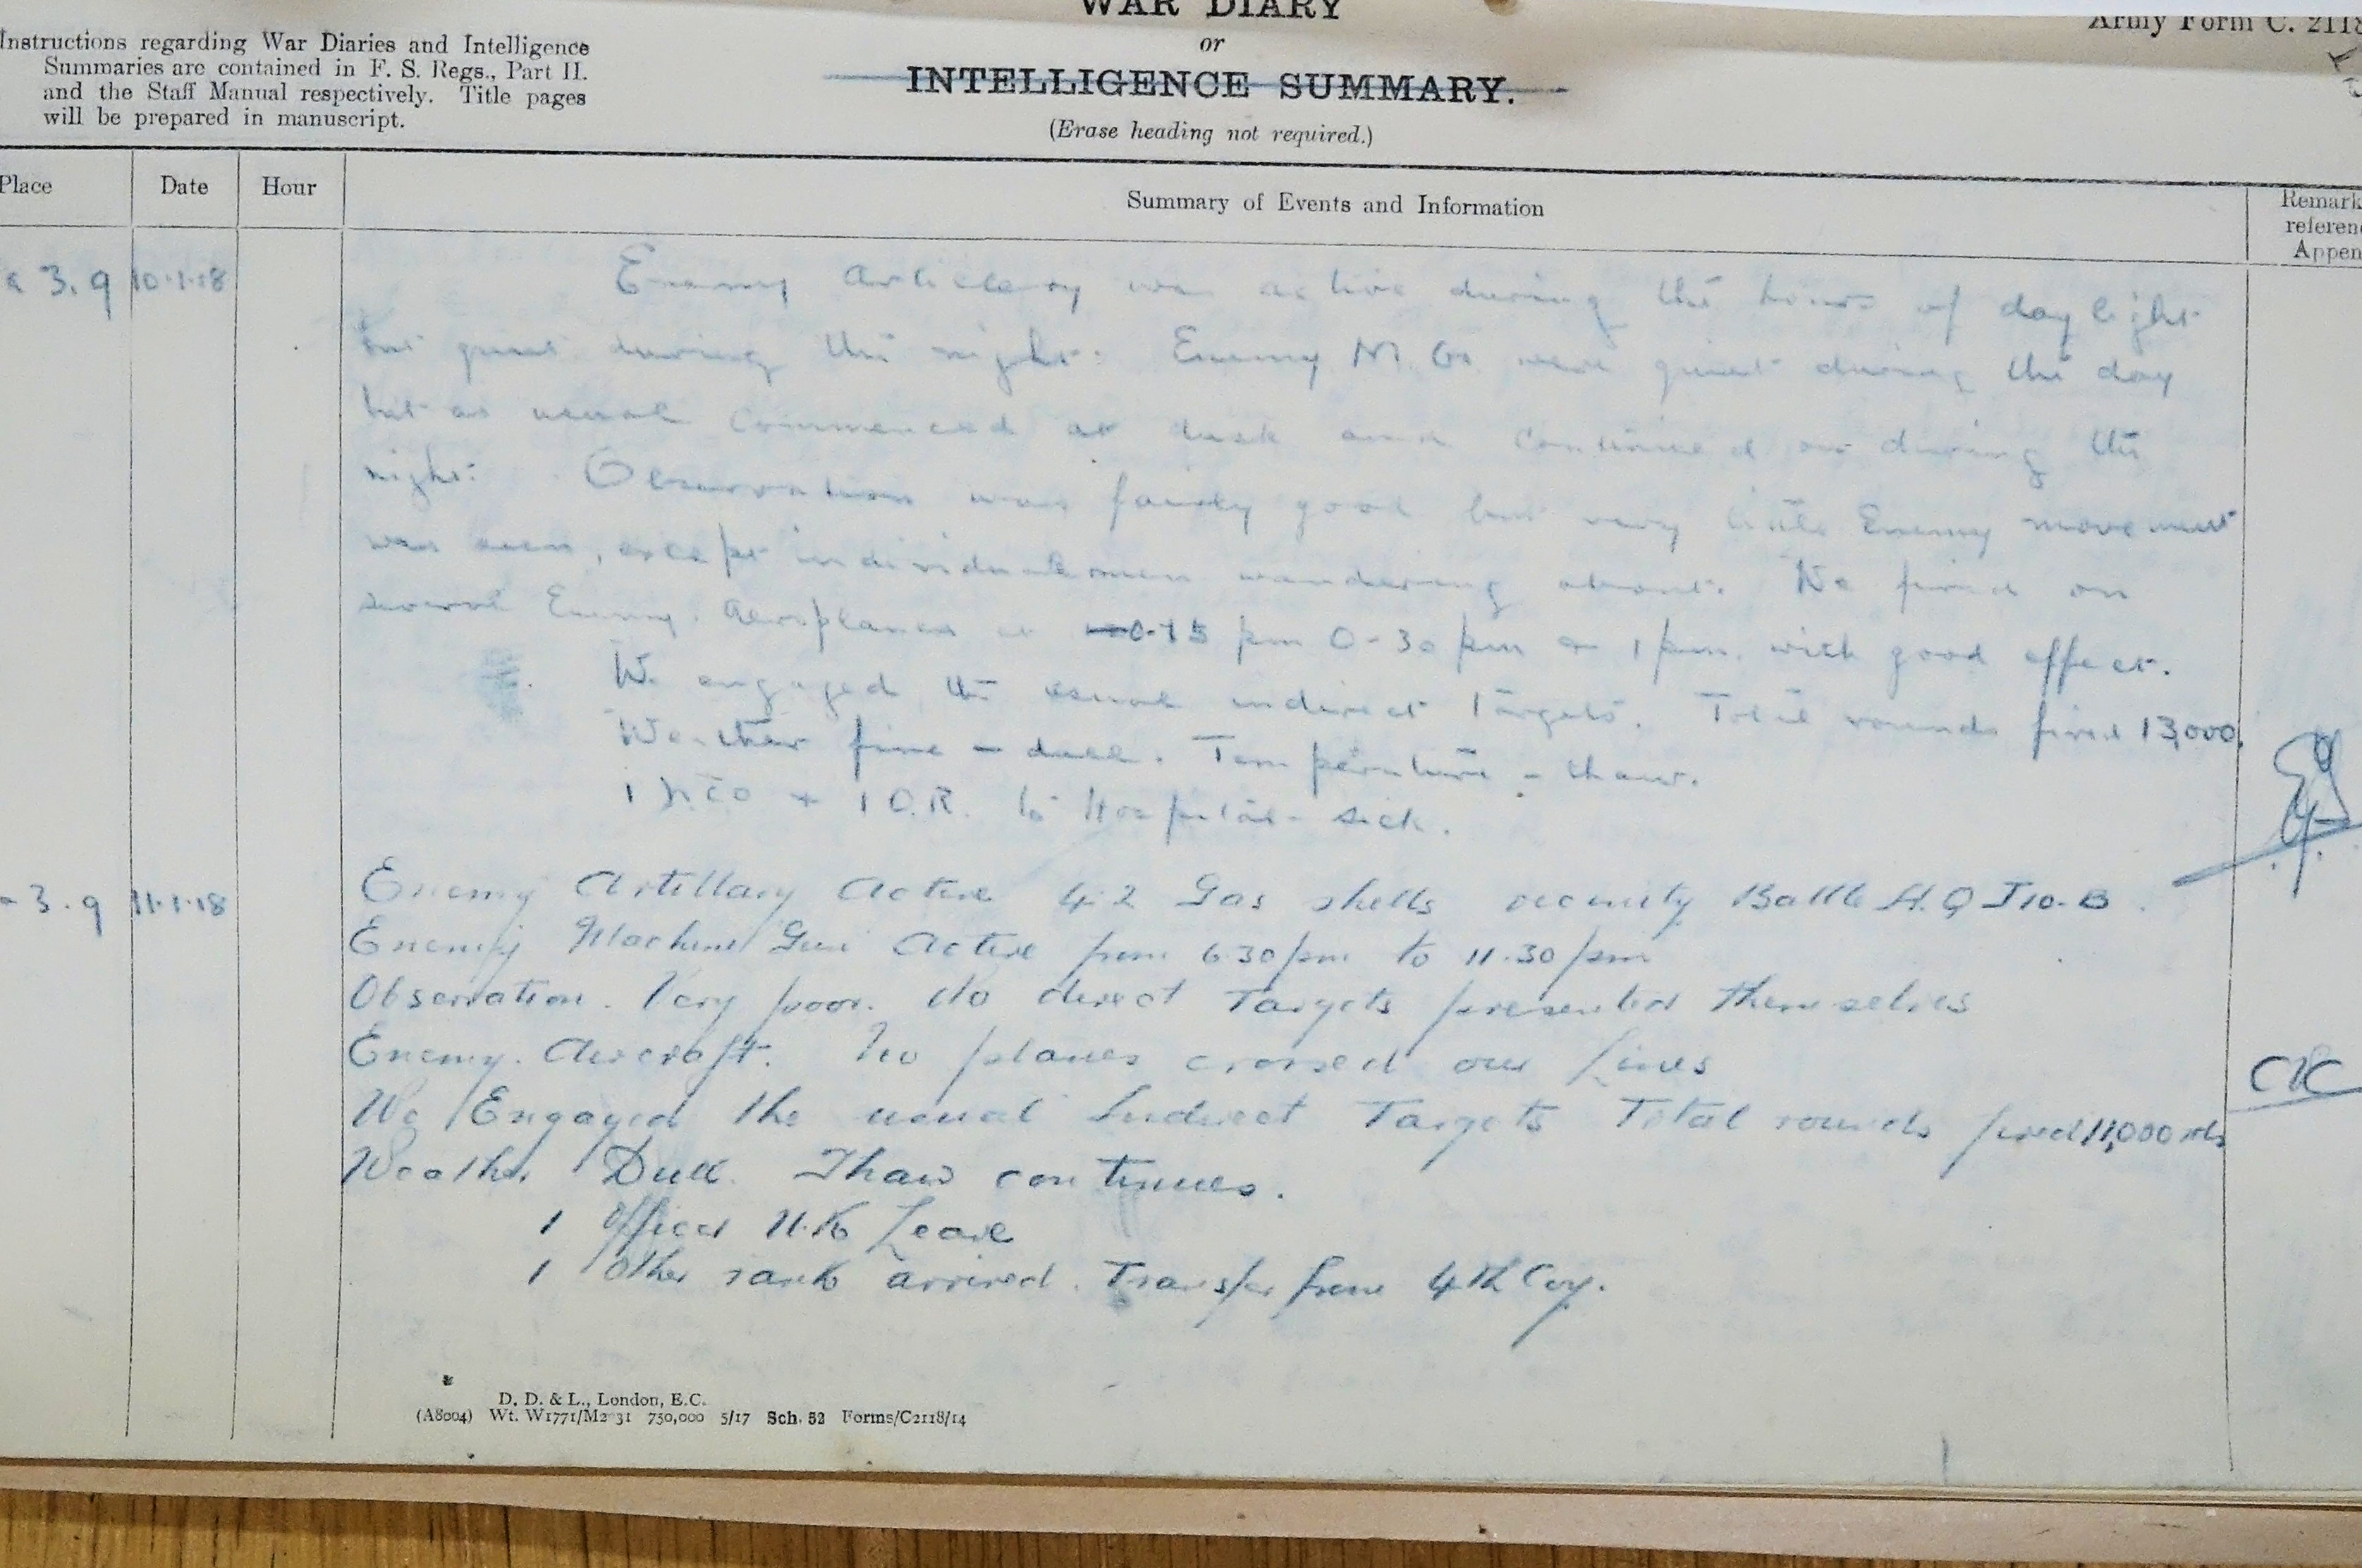 WAR DIARY
or
INTELLIGENCE SUMMARY.
(Erase heading not required.)
Army Form C. 2118
Instructions regarding War Diaries and Intelligence
Summaries are contained in F. S. Regs., Part II.
and the Staff Manual respectively. Title pages
will be prepared in manuscript.
Place Date Hour Summary of Events and Information Remark
referen
Appen
3.9 10.1.18 Enemy Artillery was active during the hours of daylight
but quiet during the night. Enemy M.Gs were quiet during the day
but as usual commenced at dusk and continued on during the
night. Observation was fairly good but very little Enemy movement
was seen, except individual men wandering about. We fired on
several Enemy Aeroplanes at 0-15 pm 0-30 pm & 1 pm. with good effect.
We engaged the usual indirect Targets. Total rounds fired 13,000.
Weather fine - dull. Temperature - thaw.
1 NCO + 1 O.R. to Hospital - sick.
3.9 11.1.18 Enemy Artillary Active 4.2 Gas shells vicinity Battle H.Q J10.B.
Enemy Machine Gun Active from 6.30pm to 11.30pm
Observation. Very poor. No direct Targets presented themselves
Enemy. Aircraft. No planes crossed our lines
CVC
We Engaged the usual Indirect Targets Total rounds fired 11,000 rds
Weather Dull. Thaw continues.
1 Officer U.K Leave
1 Other rank arrived. Transfer from 4th Coy.
D. D. & L., London, E.C.
(A8004) Wt. W1771/M2 31 750,000 5/17 Sch. 52 Forms/C2118/14